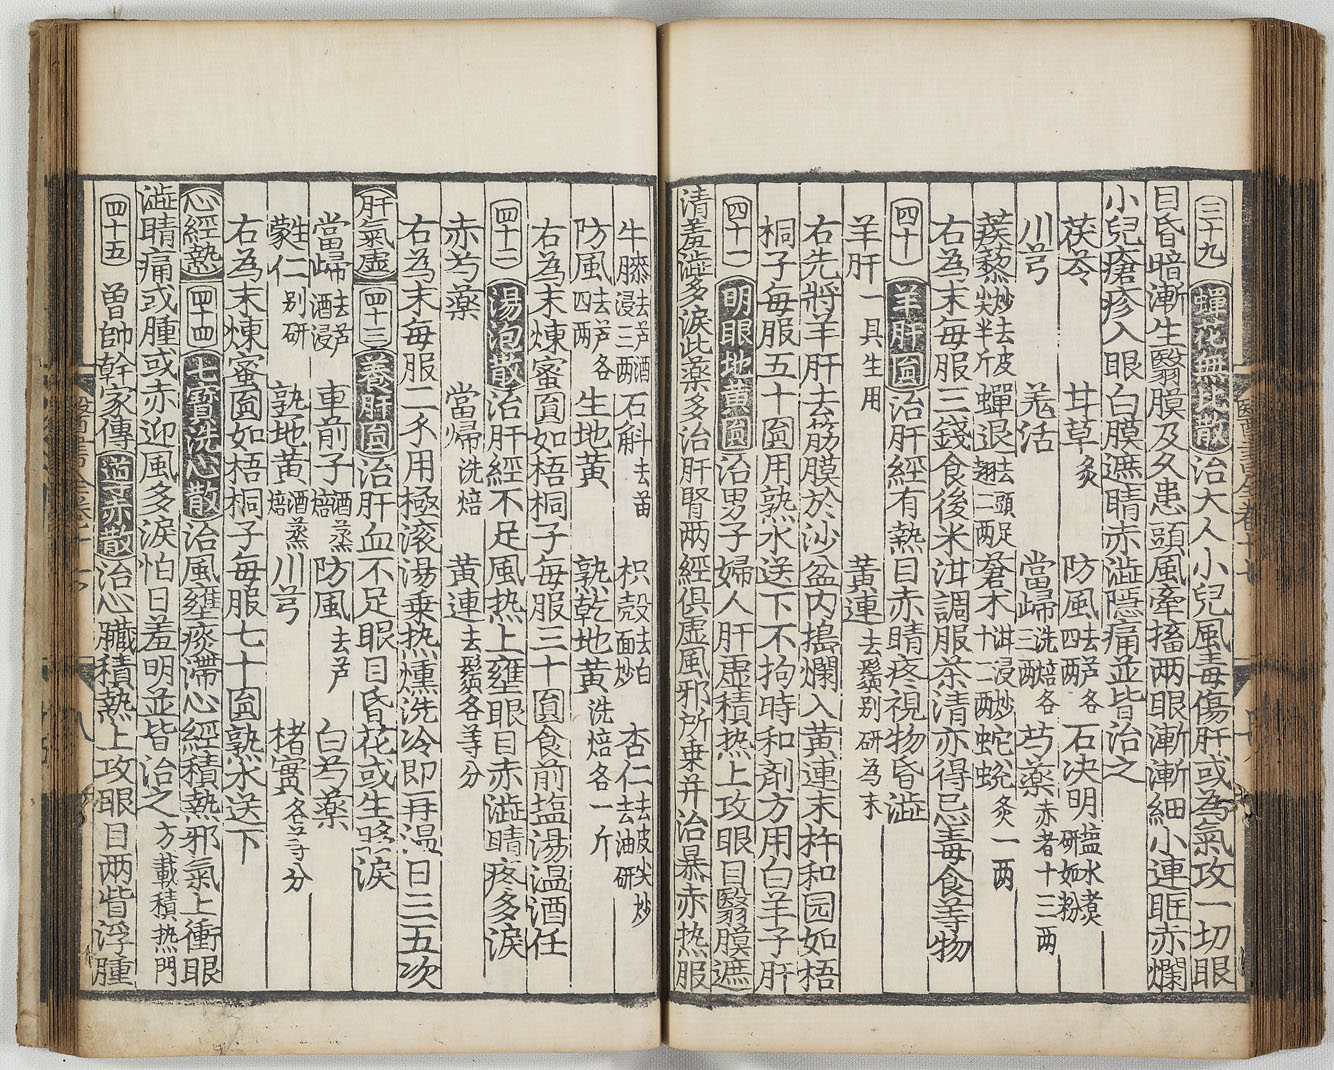 三十九 蟬花無比散 治大人小兒風毒傷肝或為氣攻一切眼
目昏暗漸生翳膜及久患頭風牽搐两眼漸漸細小連眶赤爛
小兒瘡疹入眼白膜遮睛赤澁隱痛並皆治之
茯苓 甘草炙 防風去芦各四两 石决明塩水煮研如粉
川芎 羗活 當歸洗焙各三两 芍藥赤者十三两
蒺藜炒去皮尖半斤 蟬退去頭足翅二两 蒼术泔浸炒十二两 蛇蛻炙一两
右為末每服三錢食後米泔調服茶清亦得忌毒食等物
四十 羊肝圎 治肝經有熱目赤睛疼視物昏澁
羊肝一具生用 黃連去鬚别研為末
右先將羊肝去筋膜於沙盆内搗爛入黃連末杵和园如梧
桐子每服五十圎用熟水送下不拘時和劑方用白羊子肝
四十一 明眼地黃圎 治男子婦人肝虛積热上攻眼目翳膜遮
清羞澁多淚此藥多治肝腎两經俱虛風邪所乗并治暴赤热服
牛膝去芦酒浸三两 石斛去苗 枳殻去白面炒 杏仁去皮尖炒去油研
防風去芦各四两 生地黃 孰乾地黃洗焙各一斤
右為末煉蜜圎如梧桐子每服三十圎食前塩湯温酒任
四十二 湯泡散 治肝經不足風热上壅眼目赤澁睛疼多淚
赤芍藥 當歸洗焙 黃連去鬚各等分
右為末每服二不用極滚湯乗热燻洗冷即再温日三五次
肝氣虛 四十三 養肝圎 治肝血不足眼目昏花或生眵淚
當歸去芦酒浸 車前子酒蒸焙 防風去芦 白芍藥
蕤仁别研 孰地黃酒蒸焙 川芎 楮實各等分
右為末煉蜜圎如梧桐子每服七十圎熟水送下
心經熱 四十四 七寳洗心散 治風壅痰滯心經積熱邪氣上衝眼
澁睛痛或腫或赤迎風多淚怕日羞明並皆治之方載積热門
四十五 曽帥幹家傳 導赤散 治心臟積熱上攻眼目两眥浮腫